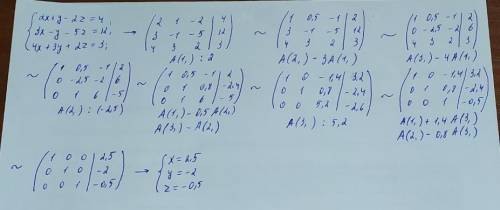 { 2x+y-2z=4, 3x-y-5z=12, 4x+3y+2z=3; → ( 2 1 -2 | 4 ; 3 -1 -5 | 12 ; 4 3 2 | 3 ) ~ ( 1 0,5 -1 | 2 ; 3 -1 -5 | 12 ; 4 3 2 | 3 ) ~ ( 1 0,5 -1 | 2 ; 0 -2,5 -2 | 6 ; 4 3 2 | 3 )
A(1,) : 2 A(2,) - 3A(1,) A(3,) - 4A(1,)
~ ( 1 0,5 -1 | 2 ; 0 -2,5 -2 | 6 ; 0 1 6 | -5 ) ~ ( 1 0,5 -1 | 2 ; 0 1 0,8 | -2,4 ; 0 1 6 | -5 ) ~ ( 1 0 -1,4 | 3,2 ; 0 1 0,8 | -2,4 ; 0 0 5,2 | -2,6 ) ~ ( 1 0 -1,4 | 3,2 ; 0 1 0,8 | -2,4 ; 0 0 1 | -0,5 )
A(2,) : (-2,5) A(1,) - 0,5 A(2,) A(3,) : 5,2 A(1,) + 1,4 A(3,)
A(3,) - A(2,) A(2,) - 0,8 A(3,)
~ ( 1 0 0 | 2,5 ; 0 1 0 | -2 ; 0 0 1 | -0,5 ) → { x=2,5 y=-2 z=-0,5